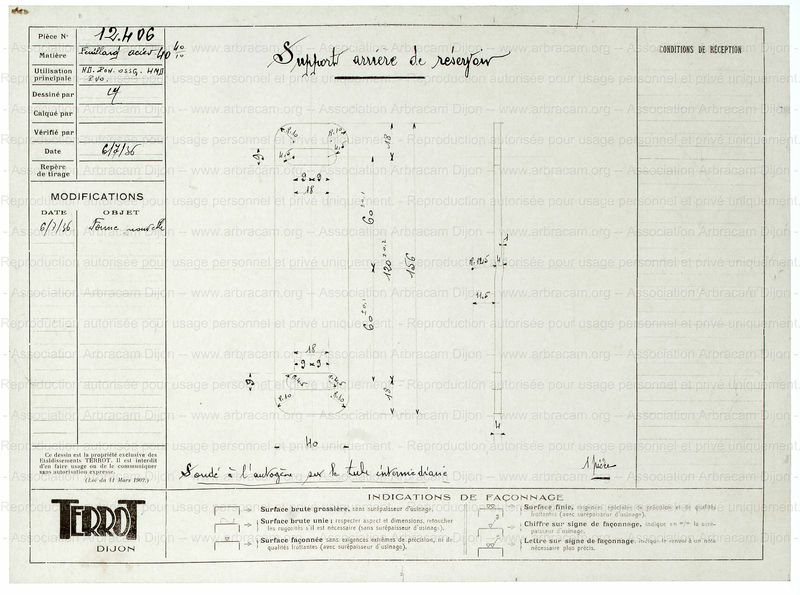 Pièce N° 12.406
Matière Feuillard acier 40 40/10
Utilisation principale
Dessiné par
Calqué par
Vérifié par
Date 6/7/36
Repère de tirage
MODIFICATIONS
DATE OBJET
6/7/36 Forme nouvelle
Support arrière de réservoir
CONDITIONS DE RÉCEPTION
R.10 R.10
4,5 4,5
9
9 9
18
18
60 ±0,1
120 ±0,2
156
60 ±0,1
18
9 9
9
4,5 4,5
R.10 R.10
18
40
R.12,5
11,5
4
Soudé à l'autogène sur le tube intermédiaire
1 pièce
Ce dessin est la propriété exclusive des
Etablissements TERROT. Il est interdit
d'en faire usage ou de le communiquer
sans autorisation expresse.
(Loi du 11 Mars 1902.)
TERROT
DIJON
INDICATIONS DE FAÇONNAGE
Surface brute grossière, sans surépaisseur d'usinage.
Surface brute unie : respecter aspect et dimensions, retoucher
les rugosités s'il est nécessaire (sans surépaisseur d'usinage).
Surface façonnée sans exigences extrêmes de précision, ni de
qualités frottantes (avec surépaisseur d'usinage).
Surface finie, exigences spéciales de précision et de qualités
frottantes (avec surépaisseur d'usinage).
Chiffre sur signe de façonnage, indique en m/m la surépaisseur d'usinage.
Lettre sur signe de façonnage, indique le renvoi à une note
nécessaire plus précis.
www.arbracam.org – Association Arbracam Dijon
Reproduction autorisée pour usage personnel et privé uniquement.